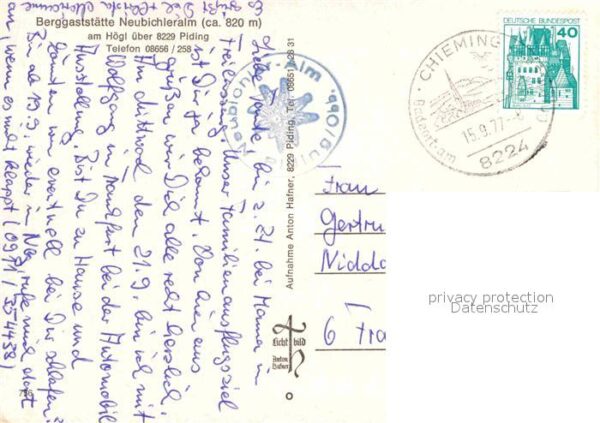 Berggaststätte Neubichleralm (ca. 820 m)
am Högl über 8229 Piding
Telefon 08656 / 258
Liebe Tante bin z. Zt. bei Mama in
Freilassing. Unser Familienausflugsziel
ist Dir ja bekannt. Von hier aus
grüßen wir Dich alle recht herzlich.
Am Mittwoch den 21.9. bin ich mit
Wolfgang in Frankfurt bei der Automobil
Ausstellung. Bist Du zu Hause und
könnten wir eventuell bei Dir schlafen?
Bin ab 19.9 wieder in Nbg, rufe mich dort
an, wenn es nicht klappt (0911/354438)
Es grüßt Dich
Neubichler-Alm
Aufnahme Anton Hafner, 8229 Piding, Tel.
Licht
bild
Anton
Hafner
CHIEMING
15.9.77
8224
DEUTSCHE BUNDESPOST
40
Frau
Gertru
Nidda
6 Fra
privacy protection
Datenschutz